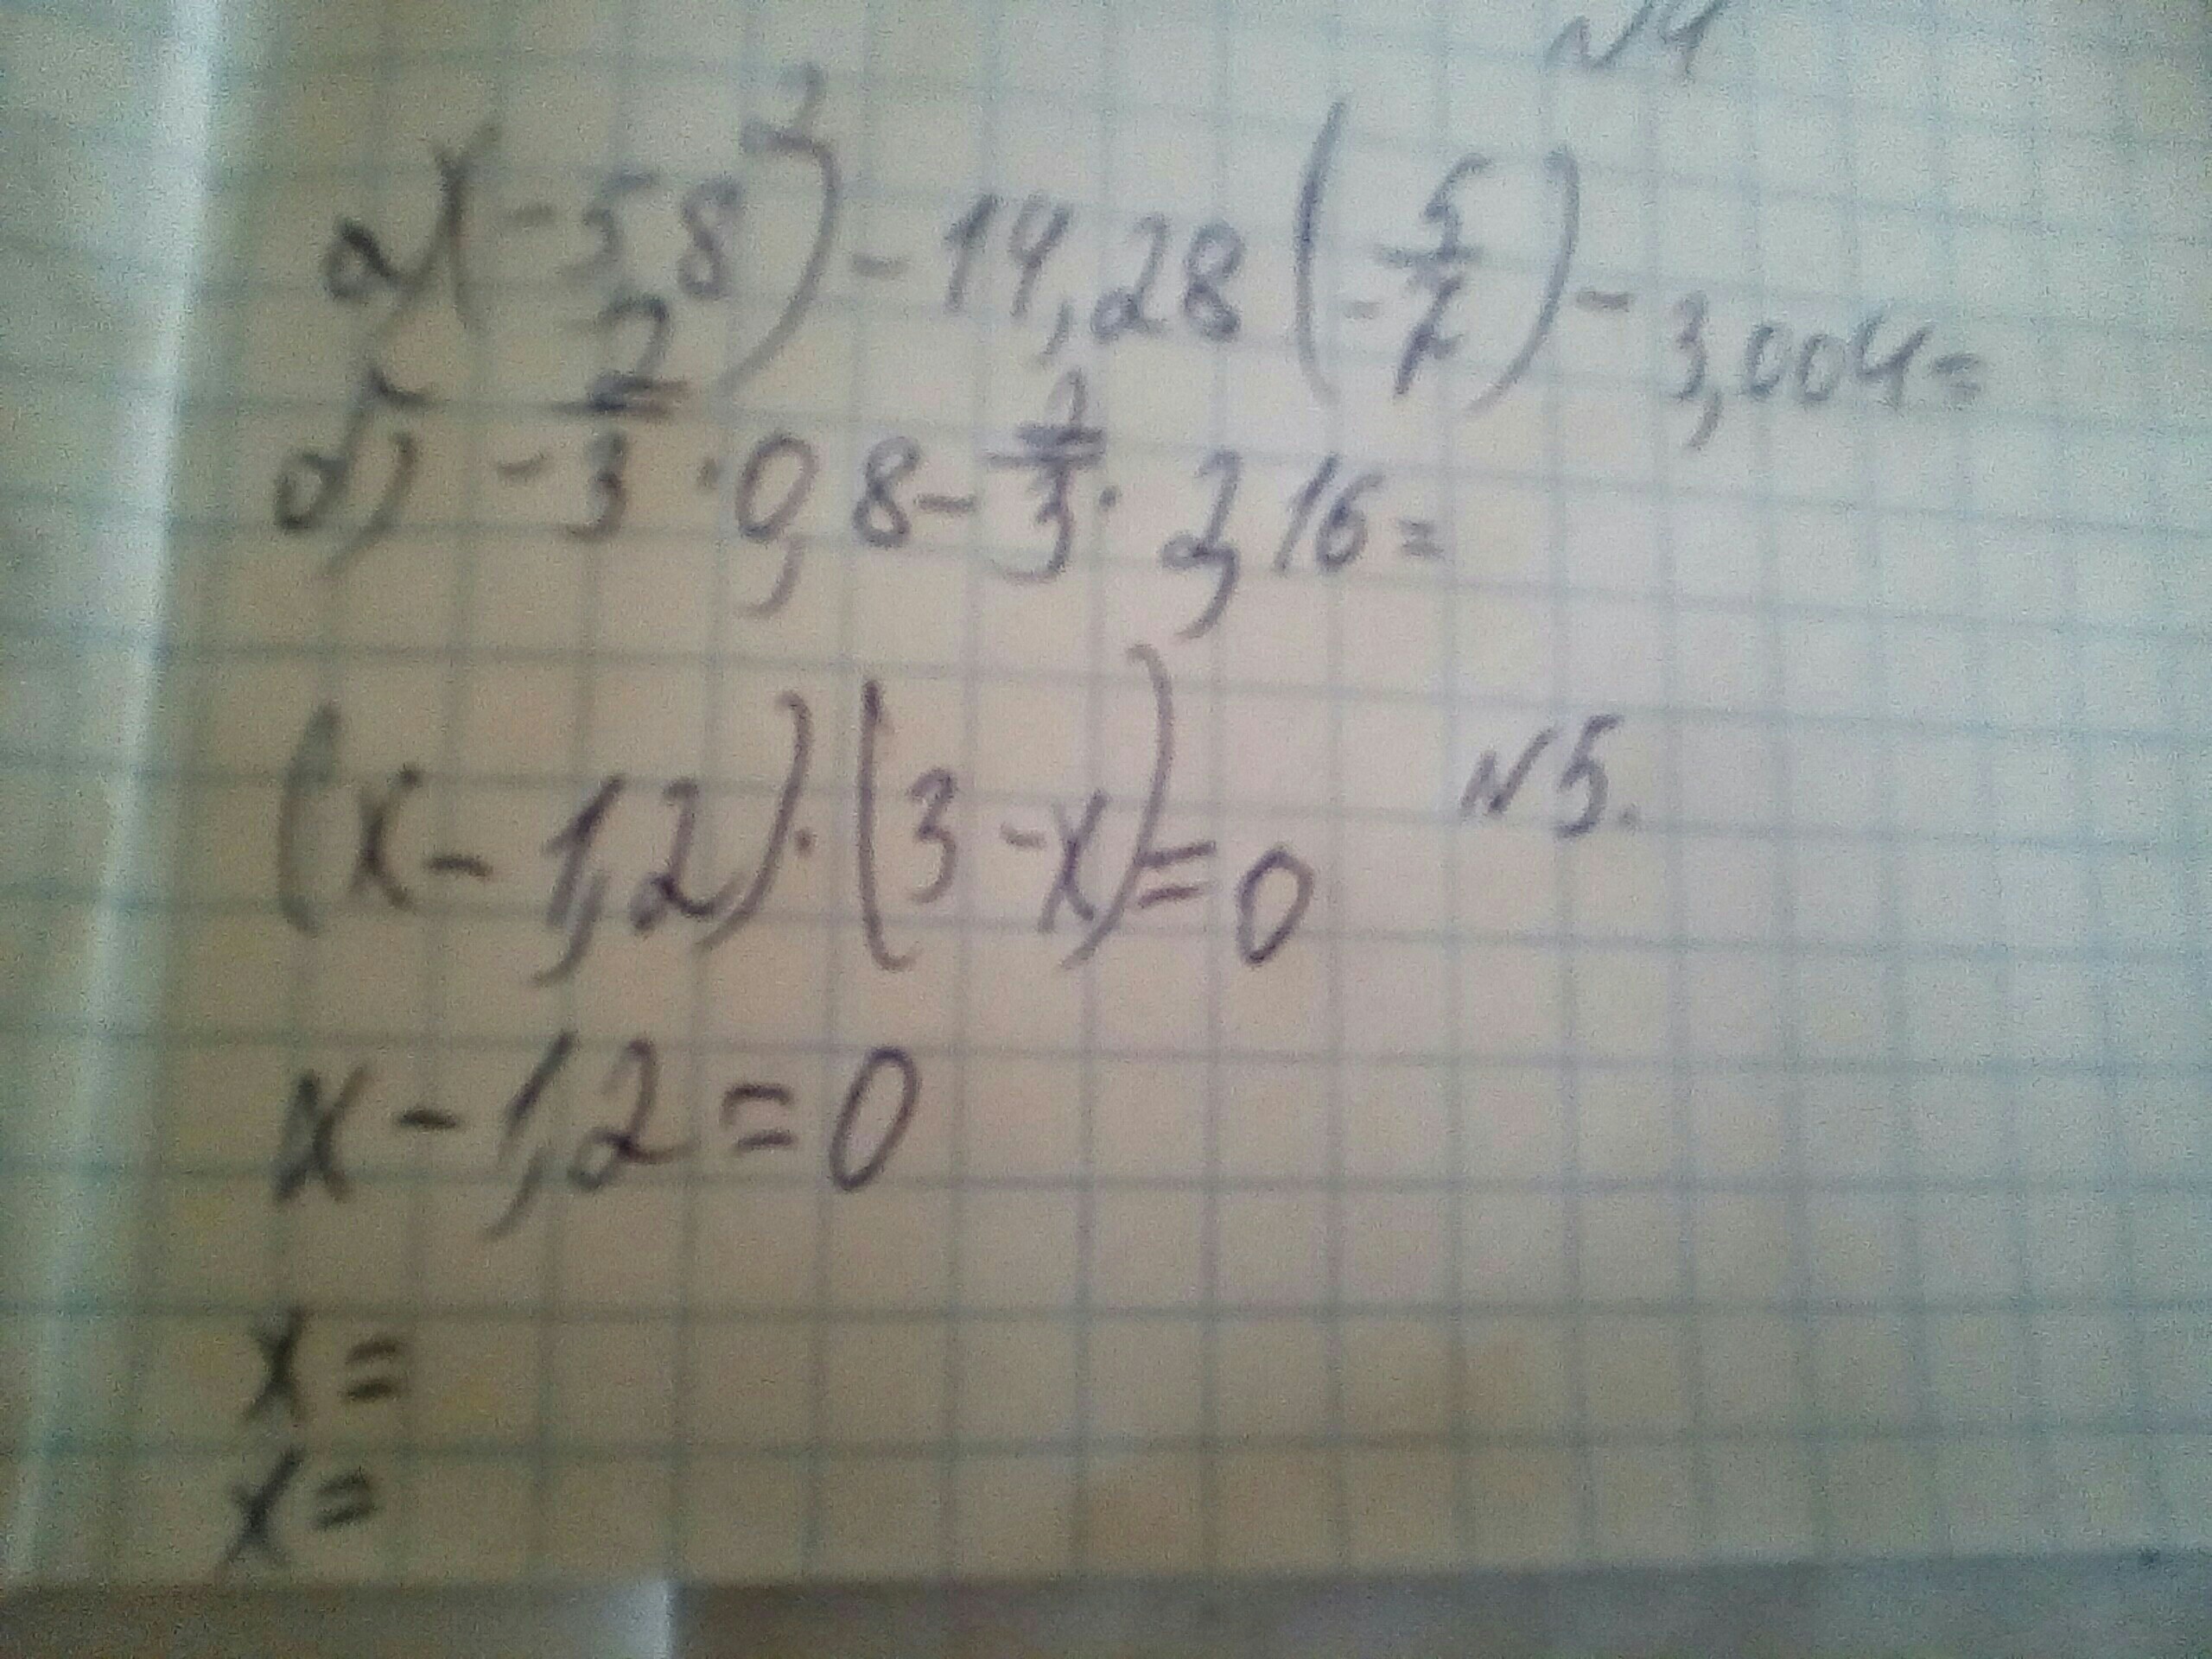 N4
а) (-5,8)² - 14,28 (-5/7) - 3,004=
б) -2/3 · 0,8 - 2/3 · 2,16=
N5.
(x - 1,2) · (3 - x) = 0
x - 1,2 = 0
x =
x =